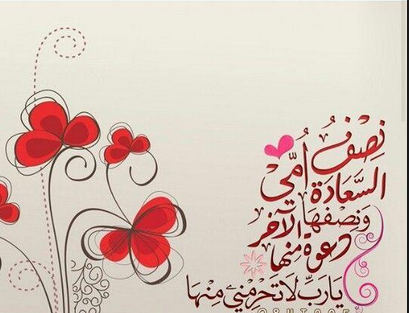 نِصْفُ
السَّعَادَة أُمِّي
وَنِصْفُهَا الآخَر
دَعْوَة مِنْهَا
يَارَبِّ لَا تَحْرِمْنِي مِنْهَا